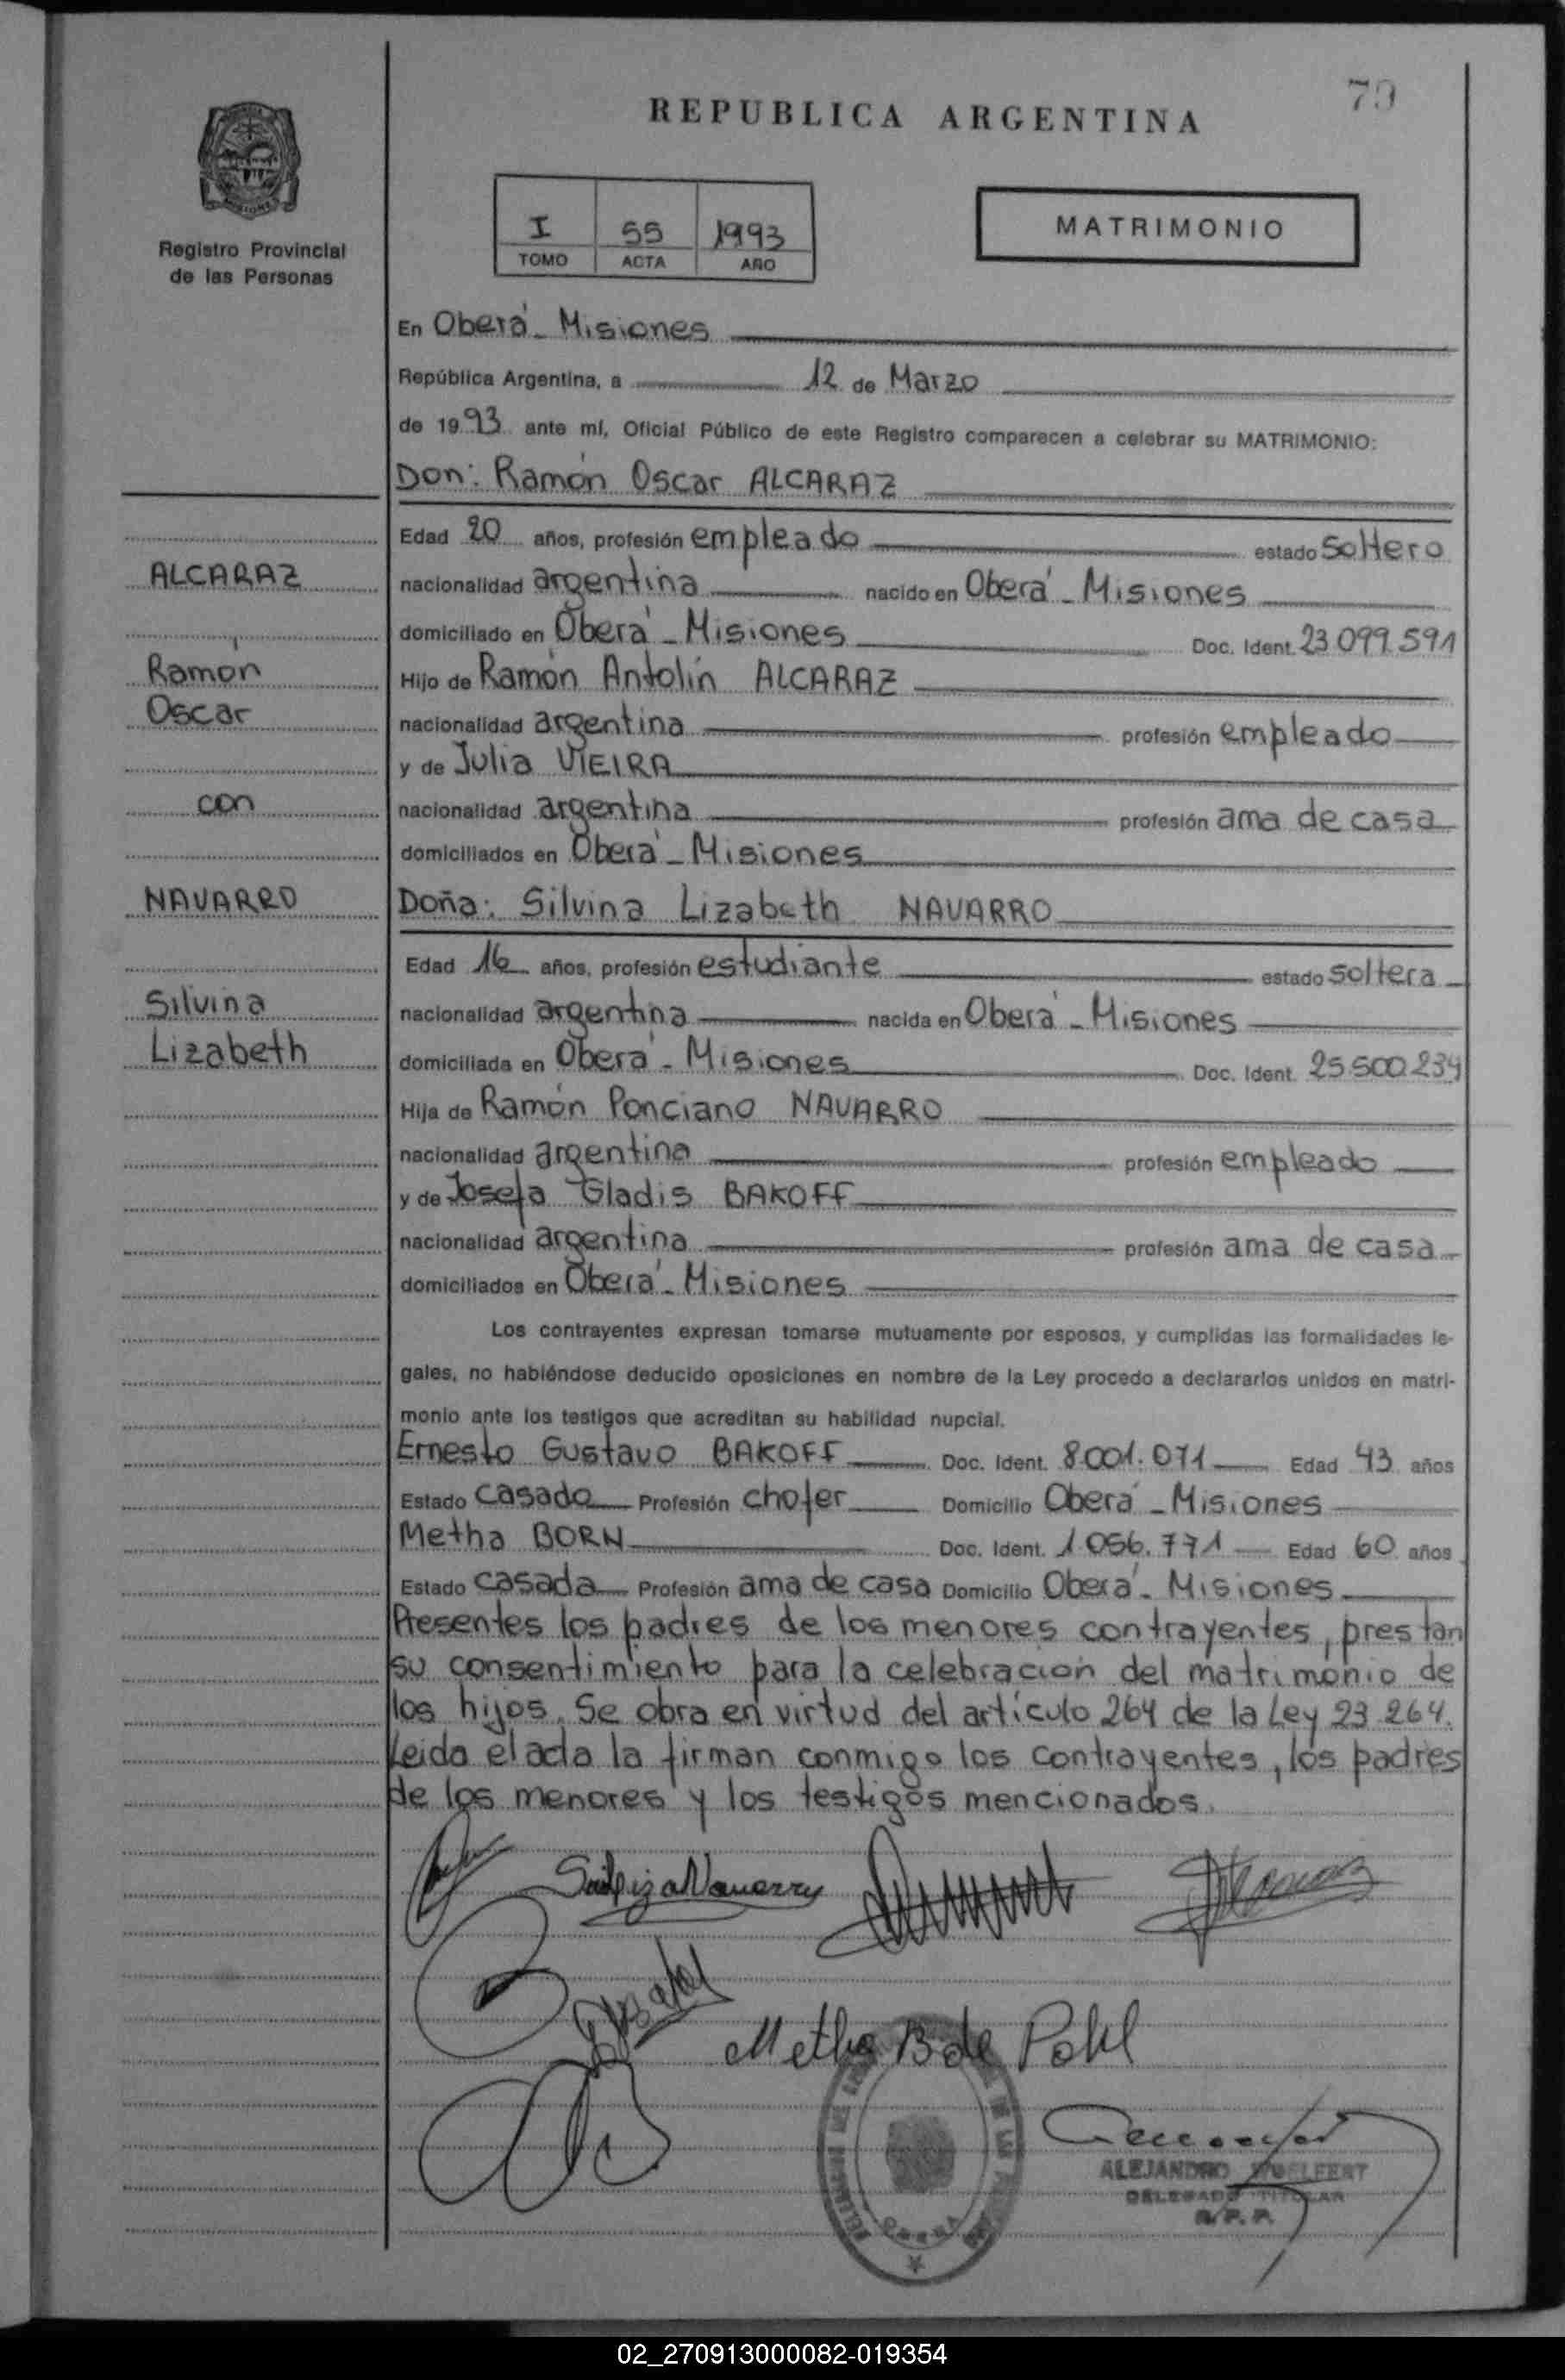 79
REPUBLICA ARGENTINA
Registro Provincial
de las Personas
I 55 1993
TOMO ACTA AÑO
MATRIMONIO
En Oberá - Misiones
República Argentina, a 12 de Marzo
de 1993 ante mí, Oficial Público de este Registro comparecen a celebrar su MATRIMONIO:
Don: Ramón Oscar ALCARAZ
Edad 20 años, profesión empleado estado soltero
ALCARAZ
nacionalidad argentina nacido en Oberá - Misiones
domiciliado en Oberá - Misiones Doc. Ident. 23 099.591
Ramón
Hijo de Ramón Antolín ALCARAZ
Oscar
nacionalidad argentina profesión empleado
y de Julia VIEIRA
con
nacionalidad argentina profesión ama de casa
domiciliados en Oberá - Misiones
NAVARRO
Doña: Silvina Lizabeth NAVARRO
Edad 16 años, profesión estudiante estado soltera
Silvina
nacionalidad argentina nacida en Oberá - Misiones
Lizabeth
domiciliada en Oberá - Misiones Doc. Ident. 25.500.234
Hija de Ramón Ponciano NAVARRO
nacionalidad argentina profesión empleado
y de Josefa Gladis BAKOFF
nacionalidad argentina profesión ama de casa
domiciliados en Oberá - Misiones
Los contrayentes expresan tomarse mutuamente por esposos, y cumplidas las formalidades le-
gales, no habiéndose deducido oposiciones en nombre de la Ley procedo a declararlos unidos en matri-
monio ante los testigos que acreditan su habilidad nupcial.
Ernesto Gustavo BAKOFF Doc. Ident. 8.001.071 Edad 43 años
Estado casado Profesión chofer Domicilio Oberá - Misiones
Metha BORN Doc. Ident. 1.056.771 Edad 60 años
Estado casada Profesión ama de casa Domicilio Oberá - Misiones
Presentes los padres de los menores contrayentes, prestan
su consentimiento para la celebración del matrimonio de
los hijos. Se obra en virtud del artículo 264 de la Ley 23.264.
Leida el acta la firman conmigo los contrayentes, los padres
de los menores y los testigos mencionados.
Metha B de Pohl
ALEJANDRO WOELFERT
DELEGADO TITULAR
R.P.P.
OBERA
02_270913000082-019354